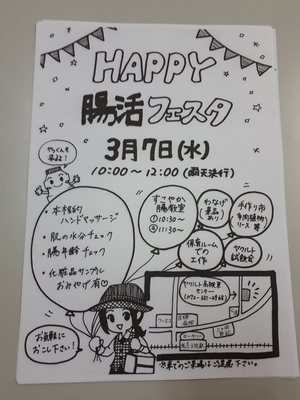 HAPPY
腸活フェスタ
3月7日(水)
10:00～12:00(雨天決行)
やっくんも
来るよ!
・本格的
ハンドマッサージ
・肌の水分チェック
・腸年齢チェック
・化粧品サンプル
おみやげ有♡
すこやか
腸教室
①10:30～
②11:30～
わなげ
(景品
あり)
手作り市
リース 等
保育ルーム
での
工作
ヤクルト
試飲会
お気軽に
おこし下さい!
ヤクルト高槻東
センター